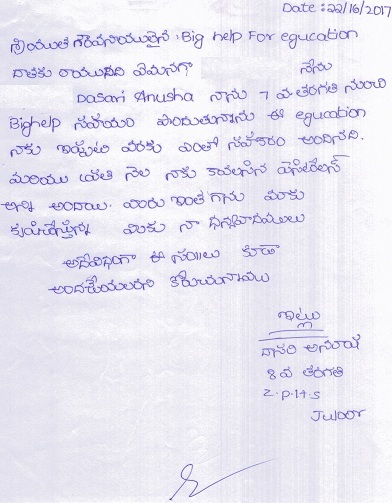 Date : 22/16/2017
శ్రీయుత గౌరవనీయులైన : Big help For egucation
దాతకు రాయునది ఏమనగా నేను
Dasari Anusha నాను 7 వ తరగతి నుంచి
Bighelp సహాయం పొందుతున్నాను ఈ egucation
నాకు ఇప్పటి వరకు ఎంతో సహకారం అందినది.
మరియు ప్రతి నెల నాకు కావలసిన
అన్ని అందాయి. మీరు ఇంత గాను మాకు
మీకు నా ధన్యవాదములు
అదేవిధంగా ఈ సాయం కూడా
అందచేయాలని కోరుచున్నాము
ఇట్లు
దాసరి అనూష
8 వ తరగతి
Z.P.H.S
Juloor